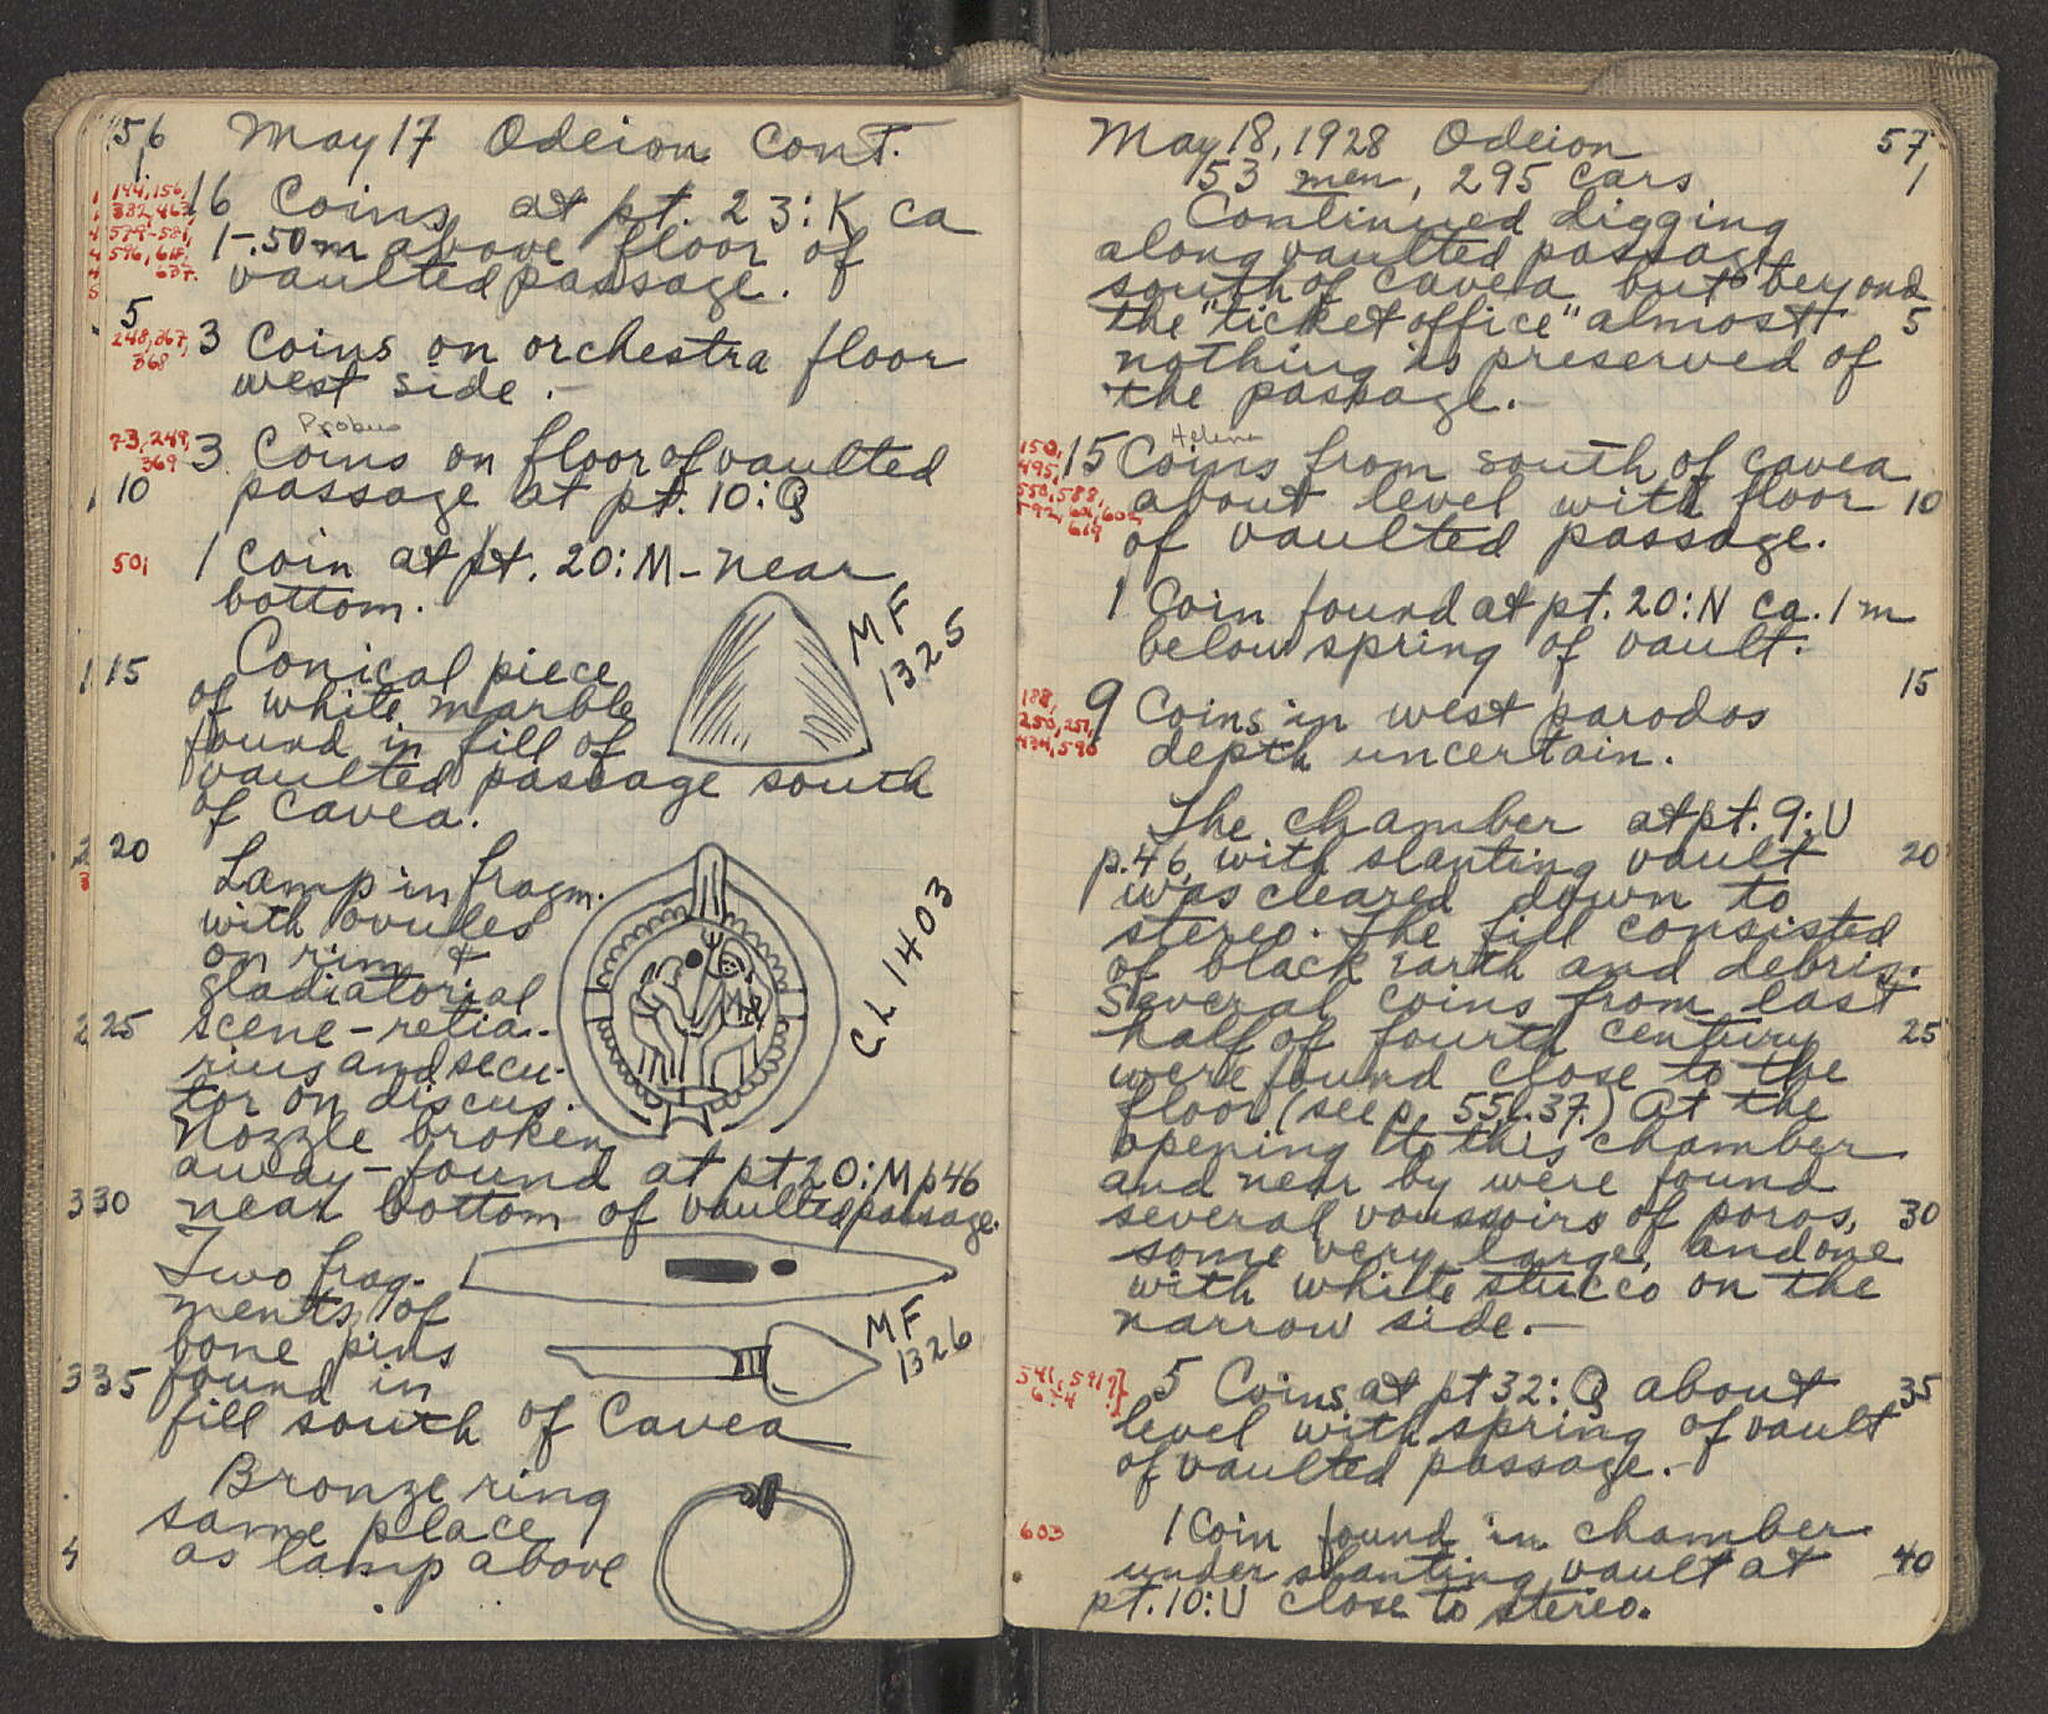 56 May 17 Odeion Cont.
1
144, 156,
332, 463,
579-581,
596, 618,
637.
16 Coins at pt. 23:K ca
1-.50m above floor of
vaulted passage.
5
248, 367,
368
3 Coins on orchestra floor
west side.-
Probus
73, 249,
369
3 Coins on floor of vaulted
10 passage at pt. 10:Q
501 1 Coin at pt. 20:M- near
bottom.
MF
1325
15 Conical piece
of white marble
found in fill of
vaulted passage south
of cavea.
20 Lamp in fragm.
with ovules
on rim &
gladiatorial
25 scene-retia-
rius and secu-
tor on discus.
Nozzle broken
away-found at pt 20:M p46
30 near bottom of vaulted passage.
CL 1403
Two frag-
ments of
bone pins
35 found in
fill south of Cavea
MF
1326
Bronze ring
same place
as lamp above
May 18, 1928 Odeion 57
153 men, 295 cars 1
Continued digging
along vaulted passage
south of cavea but beyond
the "ticket office" almost 5
nothing is preserved of
the passage.-
Helena
150,
495,
550, 588,
592, 601, 602,
619
15 Coins from south of cavea
about level with floor 10
of vaulted passage.
1 Coin found at pt. 20:N ca. 1 m
below spring of vault.
15
188,
250, 251,
434, 590
9 Coins in west parodos
depth uncertain.
The chamber at pt. 9:U
p.46, with slanting vault 20
was cleared down to
stereo. The fill consisted
of black earth and debris.
Several coins from last
half of fourth century 25
were found close to the
floor (see p. 55 l. 37.) At the
opening to this chamber
and near by were found
several voussoirs of poros, 30
some very large, and one
with white stucco on the
narrow side.-
541, 591?}
5 Coins at pt 32:Q about 35
level with spring of vault
of vaulted passage.-
603 1 Coin found in chamber
under slanting vault at 40
pt. 10:U close to stereo.